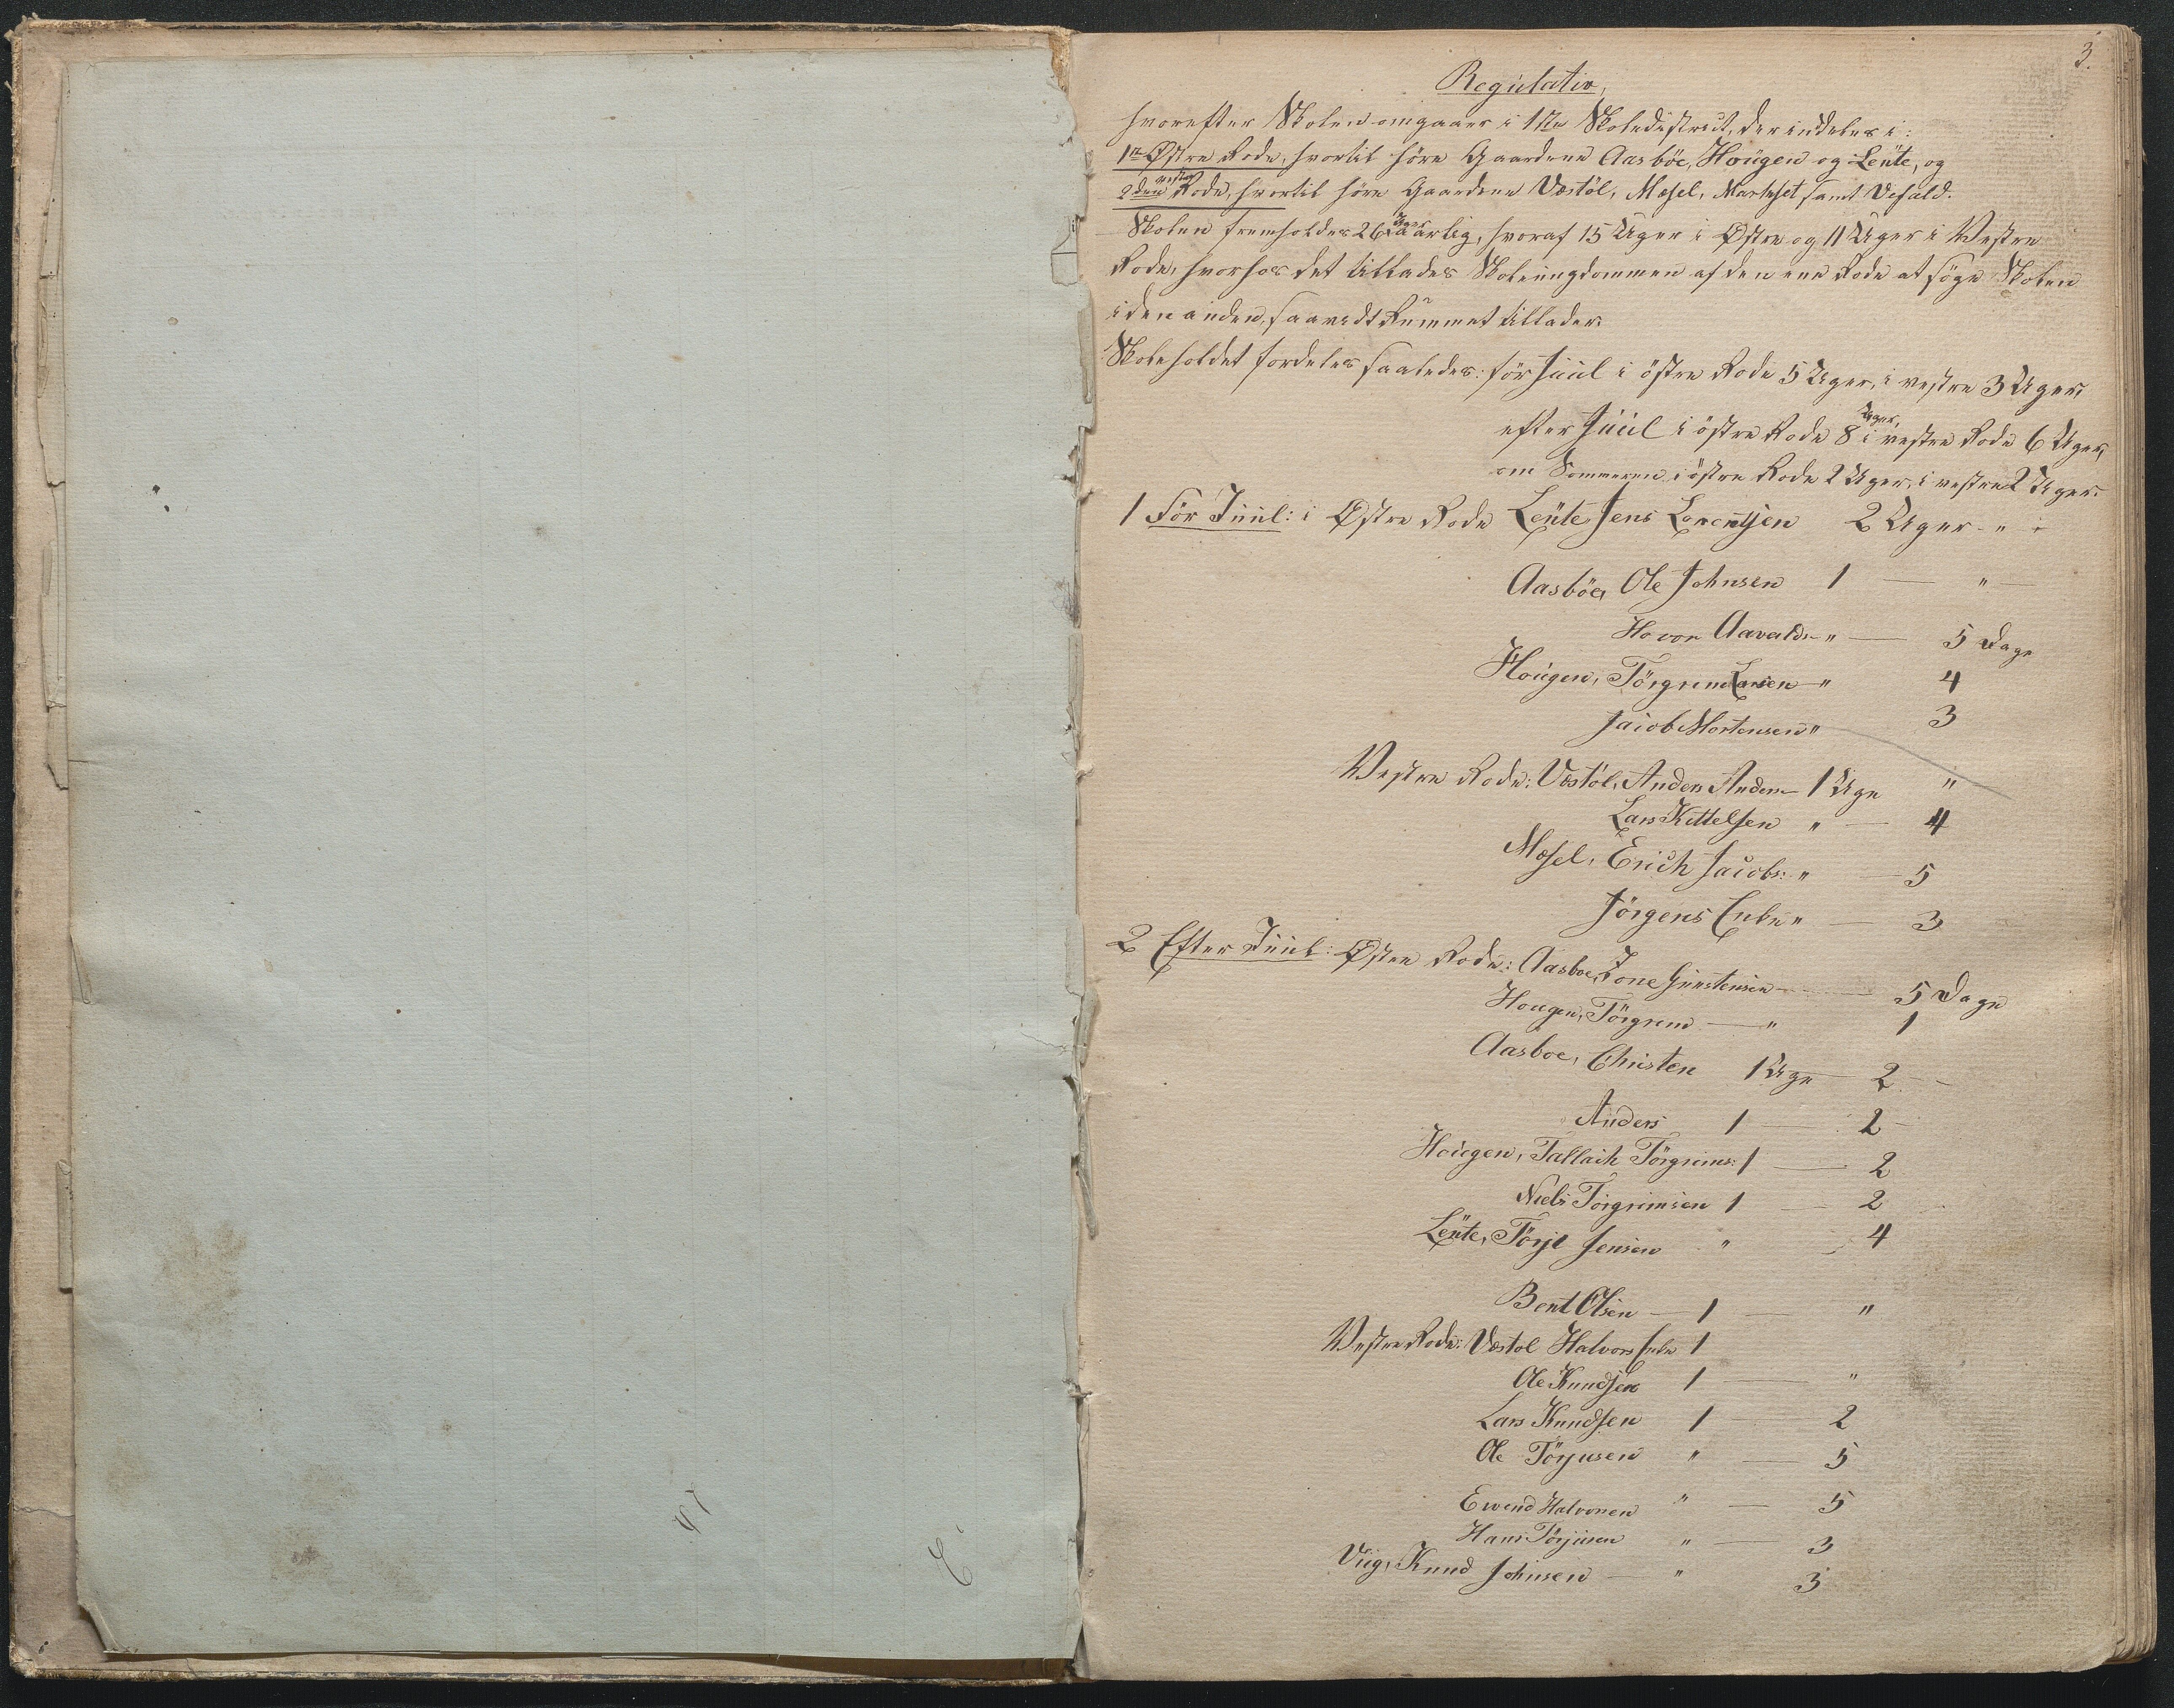 3.
Regulativ,
hvorefter Skolen omgaaer i 1ste Skoledistrict, der inddeles i:
1ste Østre Rode, hvortil höre Gaardene Aasböe, Hougen og Lente, og
2den vestre Rode, hvortil höre Gaardene Vestöl, Mosel, samt Vefald.
Skolen fremholdes 26 Uger aarlig, hvoraf 15 Uger i Østre og 11 Uger i Vestre
Rode, hvorhos det tillades Skoleungdommen af den ene Rode at söge Skolen
i den anden, saavidt Rummet tillader.
Skoleholdet fordeles saaledes: för Juul i östre Rode 5 Uger, i vestre 3 Uger,
efter Juul i östre Rode 8 Uger, i vestre Rode 6 Uger,
om Sommeren i östre Rode 2 Uger, i vestre 2 Uger.
1 För Juul: i Østre Rode Lente Jens Lorentsen 2 Uger - "
Aasböe, Ole Johnsen 1 — " —
Aavalds - " — 5 Dage
Hougen, Törgrim Larsen - " 4
Jacob Mortensen " 3
Vestre Rode: Vestöl, Anders Anders— 1 Uge "
Lars Kittelsen " — 4
Mosel, Erich Jacobs: " — 5
Jörgens Enke " — 3
2 Efter Juul: Østre Rode: Aasboe, Tone Gunstensen — 5 Dage
Hougen, Törgrim — " 1
Aasboe, Christen 1 Uge — 2 —
Anders 1 — 2 -
Hougen, Tallack Törgrims: 1 — 2
Niels Törgrimsen 1 — 2
Lente, Törje Jensen " — 4
Bent Olsen — 1 — "
Vestre Rode: Vestol Halvors Enke 1
Ole Knudsen 1 — "
Lars Knudsen 1 — 2
Ole Törjusen " — 5
Ewend Halvorsen " — 5
Hans Törjusen " — 3
Viig, Knud Johnsen — " 3